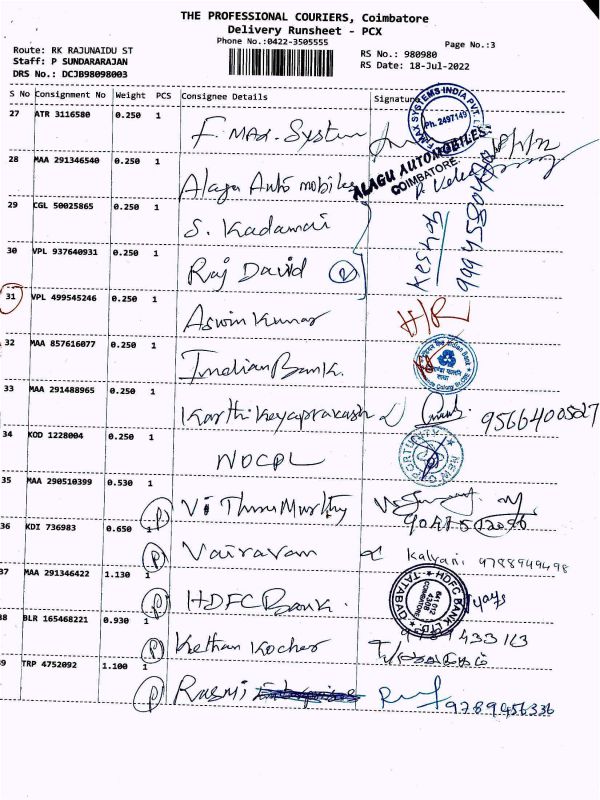 THE PROFESSIONAL COURIERS, Coimbatore
Delivery Runsheet - PCX
Phone No.:0422-3505555
Page No.:3
Route: RK RAJUNAIDU ST
RS No.: 980980
Staff: P SUNDARARAJAN
RS Date: 18-Jul-2022
DRS No.: DCJB98098003
S No Consignment No Weight PCS Consignee Details Signature
27 ATR 3116580 0.250 1 F. MAX. System
F.MAX SYSTEMS INDIA PVT. Ph. 2497149
28 MAA 291346540 0.250 1 Alagu Auto mobiles
ALAGU AUTOMOBILES
COIMBATORE
29 CGL 50025865 0.250 1 S. Kadamai
30 VPL 937640931 0.250 1 Raj David 2
Keshav
31 VPL 499545246 0.250 1 Aswin Kumar H/R
32 MAA 857616077 0.250 1 Indian Bank.
Indian Bank
33 MAA 291488965 0.250 1 Karthi Keyaprakash
34 KOD 1228004 0.250 1 NOCPL
35 MAA 290510399 0.530 1 P Vi Thiru Murthy
36 KDI 736983 0.650 1 P Vairavan Kalvani 9788949498
37 MAA 291346422 1.130 1 P HDFC Bank.
HDFC BANK LTD. TATABAD
641 012
COIMBATORE
38 BLR 165468221 0.930 1 P Kethan Kocher
39 TRP 4752092 1.100 1 P Rasmi
9789456336